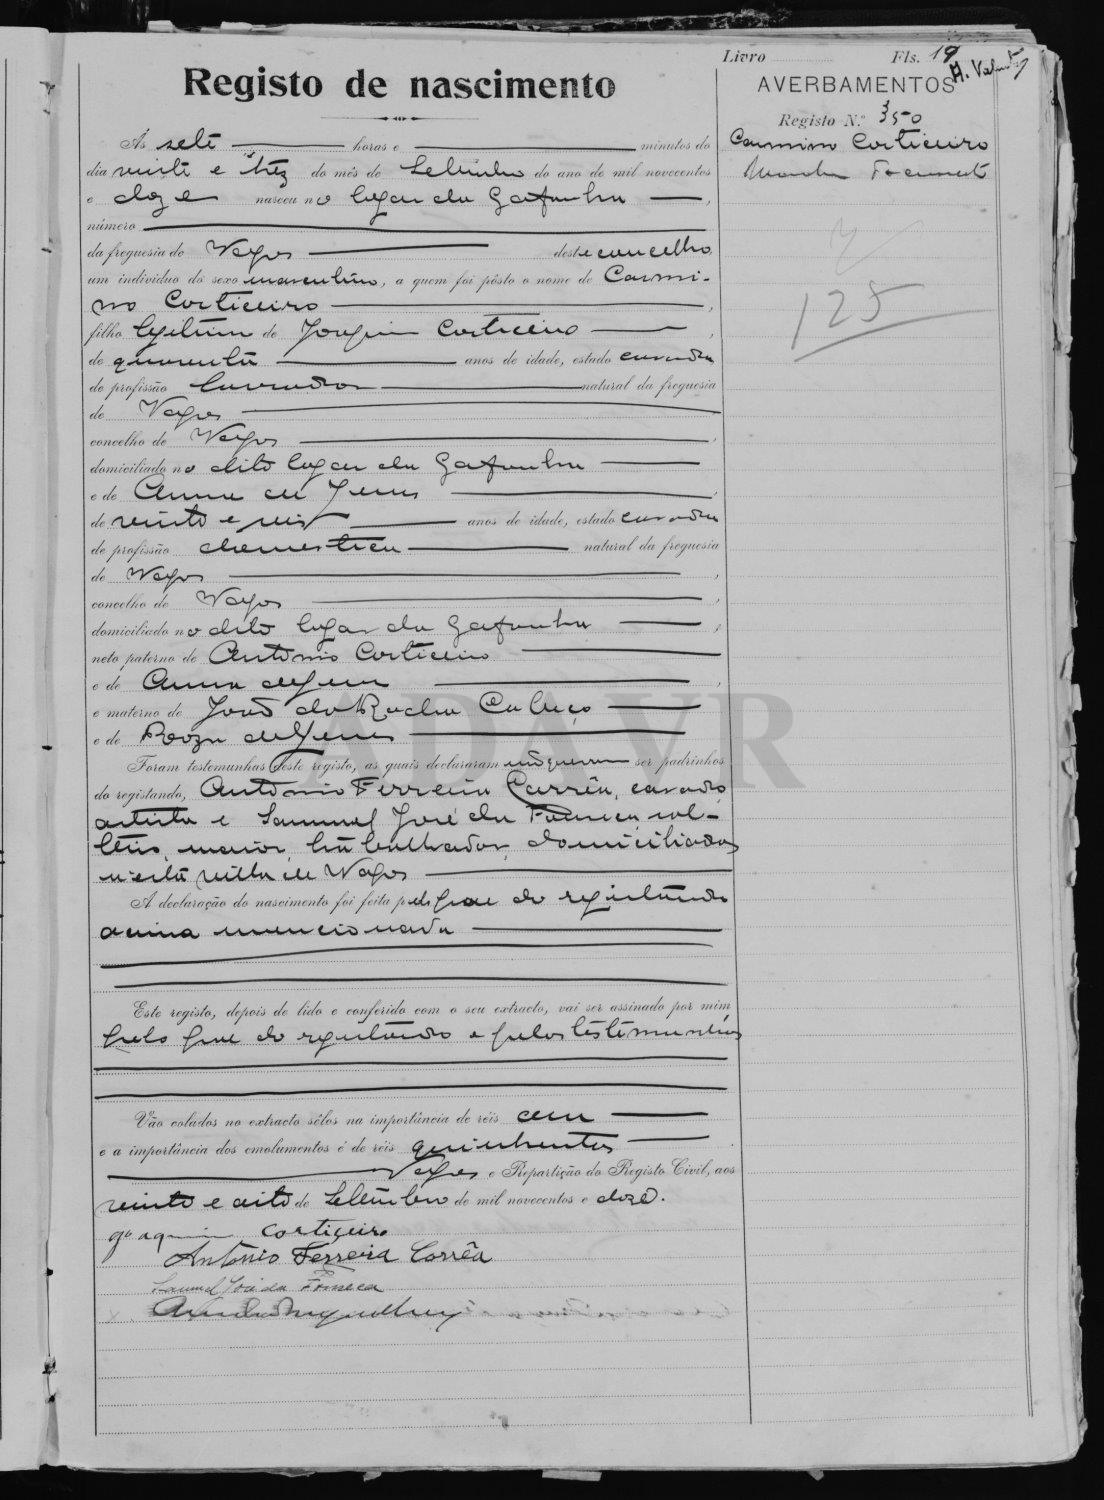 Livro Fls. 19
Registo de nascimento
AVERBAMENTOS
Registo N.º 350
Carmino Corticeiro
Ás sete horas e minutos do
dia vinte e trez do mês de Setembro do ano de mil novecentos
e doze nasceu no logar da Gafanha,
número
da freguesia de Vagos deste concelho,
um indivíduo do sexo masculino, a quem foi pôsto o nome de Carmi-
no Corticeiro,
125
filho legitimo de Joaquim Corticeiro,
de quarenta anos de idade, estado casado
de profissão lavrador natural da freguesia
de Vagos
concelho de Vagos,
domiciliado no dito logar da Gafanha
e de Anna de Jesus,
de vinte e seis anos de idade, estado casada
de profissão domestica natural da freguesia
de Vagos,
concelho de Vagos,
domiciliado no dito logar da Gafanha,
neto paterno de Antonio Corticeiro
e de Anna de Jesus,
e materno de João da Rocha Calveço
e de Roza de Jesus
ADAVR
Foram testemunhas deste registo, as quais declararam não querem ser padrinhos
do registando, Antonio Ferreira Corrêa, casado
artista e Samuel José da Fonseca, sol-
teiro, maior, trabalhador, domiciliados
n'esta villa de Vagos
A declaração do nascimento foi feita pelo pae do registando
acima mencionado
Este registo, depois de lido e conferido com o seu extracto, vai ser assinado por mim
pelo pae do registando e pelas testemunhas
Vão colados no extracto sêlos na importância de réis cem
e a importância dos emolumentos é de réis quinhentos
Vagos e Repartição do Registo Civil, aos
vinte e oito de Setembro de mil novecentos e doze.
Joaquim Cortiçeiro
António Ferreira Corrêa
Samuel José da Fonseca